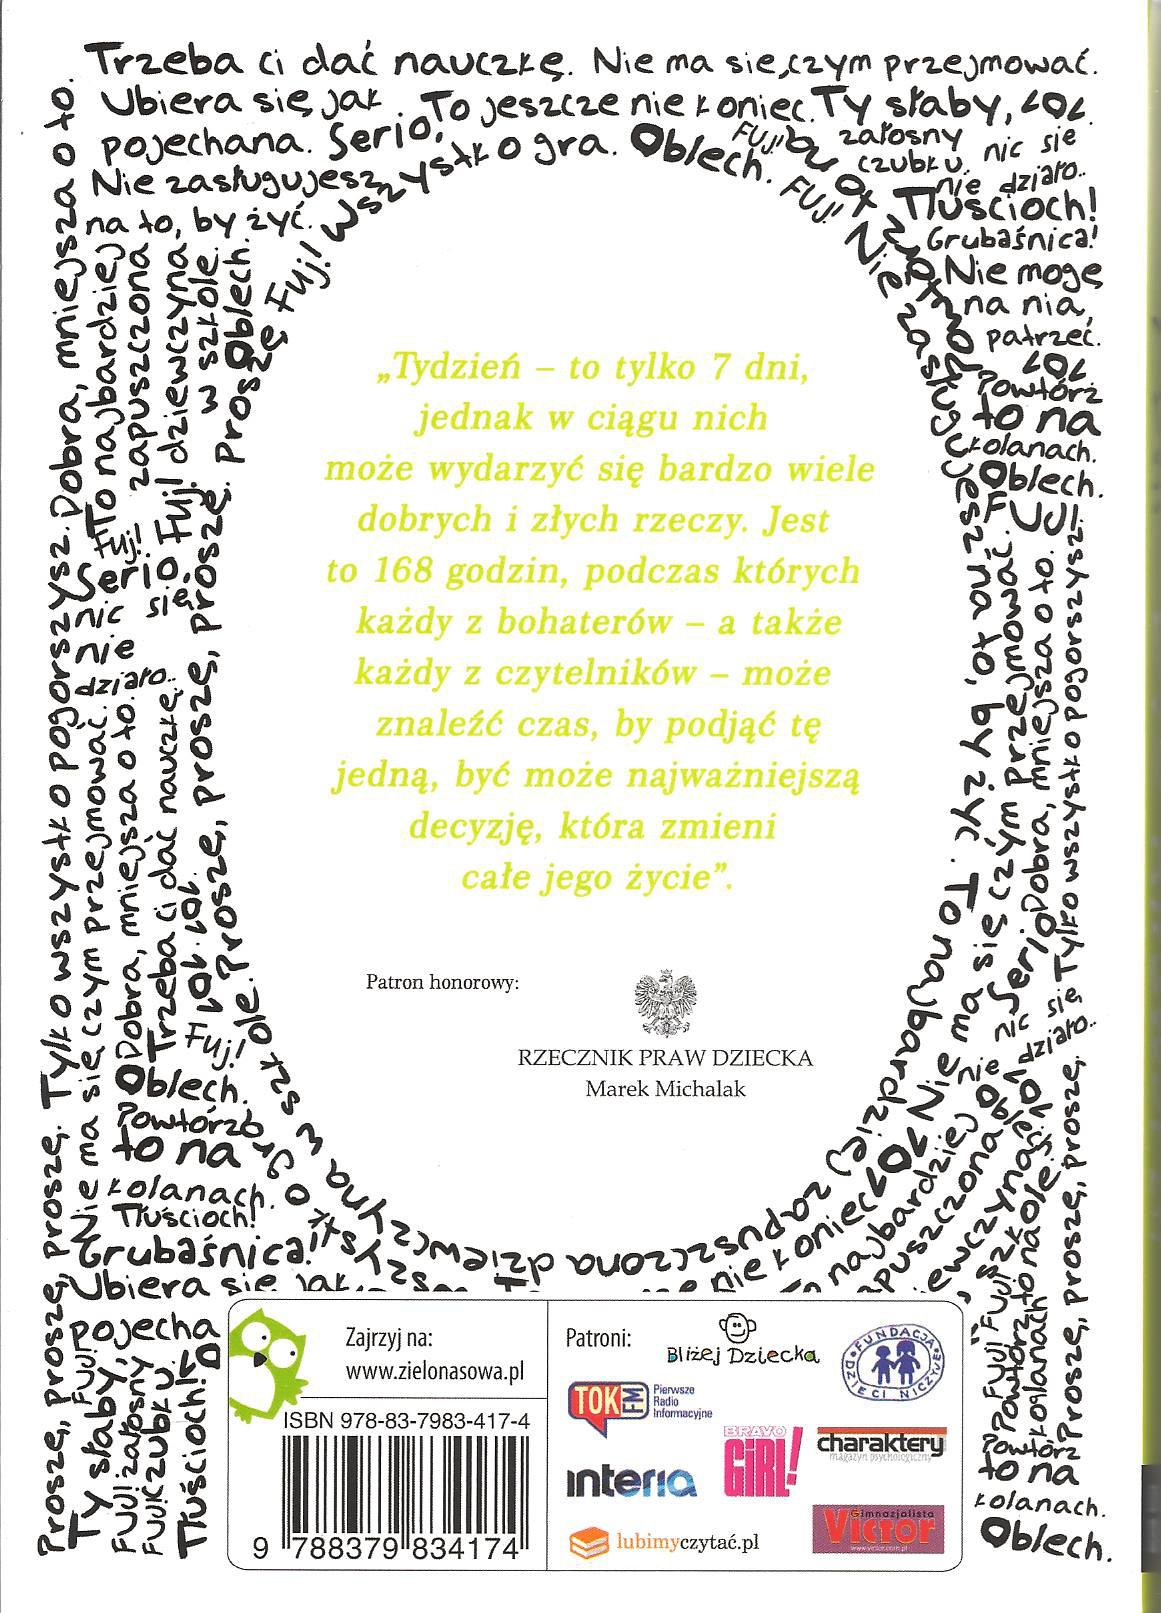 Trzeba ci dać nauczkę. Nie ma się czym przejmować.
Ubiera się jak To jeszcze nie koniec. Ty słaby, LOL.
pojechana. Serio. wszystko gra. Oblech. FUJ! żałosny
czubku. nic się
nie działo..
Nie zasługujesz
na to, by żyć.
FUJ!
Tłuścioch!
Grubaśnica!
Nie mogę
na nią
patrzeć.
LOL
Powtórz
to na
kolanach.
Oblech.
FUJ!
Tylko wszystko pogorszysz. Dobra, mniejsza o to.
Nie ma się czym przejmować.
To najbardziej
zapuszczona
dziewczyna
w szkole.
Oblech.
Fuj!
Fuj!
Serio.
nic się
nie
działo..
Dobra, mniejsza o to.
Trzeba ci dać nauczkę.
LOL LOL
Proszę, proszę, proszę, proszę. Fuj!
Nie zasługujesz na to, by żyć. To najbardziej zapuszczona dziewczyna w szkole.
Nie ma się czym przejmować.
Serio Dobra, mniejsza o to.
Tylko wszystko pogorszysz.
nic się
nie działo..
„Tydzień – to tylko 7 dni,
jednak w ciągu nich
może wydarzyć się bardzo wiele
dobrych i złych rzeczy. Jest
to 168 godzin, podczas których
każdy z bohaterów – a także
każdy z czytelników – może
znaleźć czas, by podjąć tę
jedną, być może najważniejszą
decyzję, która zmieni
całe jego życie”.
Patron honorowy:
RZECZNIK PRAW DZIECKA
Marek Michalak
Fuj!
Oblech.
Powtórz
to na
kolanach.
Tłuścioch!
Grubaśnica!
Ubiera się jak
pojecha
Proszę, proszę, proszę, proszę.
Ty słaby,
FUJ! żałosny
FUJ! czubku.
Tłuścioch!
nie koniec
To najbardziej
zapuszczona
Proszę, proszę, proszę, proszę.
Powtórz to na
kolanach
Powtórz
to na
kolanach.
Oblech.
Zajrzyj na:
www.zielonasowa.pl
ISBN 978-83-7983-417-4
9 788379 834174
Patroni:
Bliżej Dziecka
FUNDACJA
DZIECI NICZYJE
TOK FM
Pierwsze
Radio
Informacyjne
BRAVO
GiRL!
charaktery
magazyn psychologiczny
interia
Gimnazjalista
Victor
www.victor.com.pl
lubimyczytać.pl